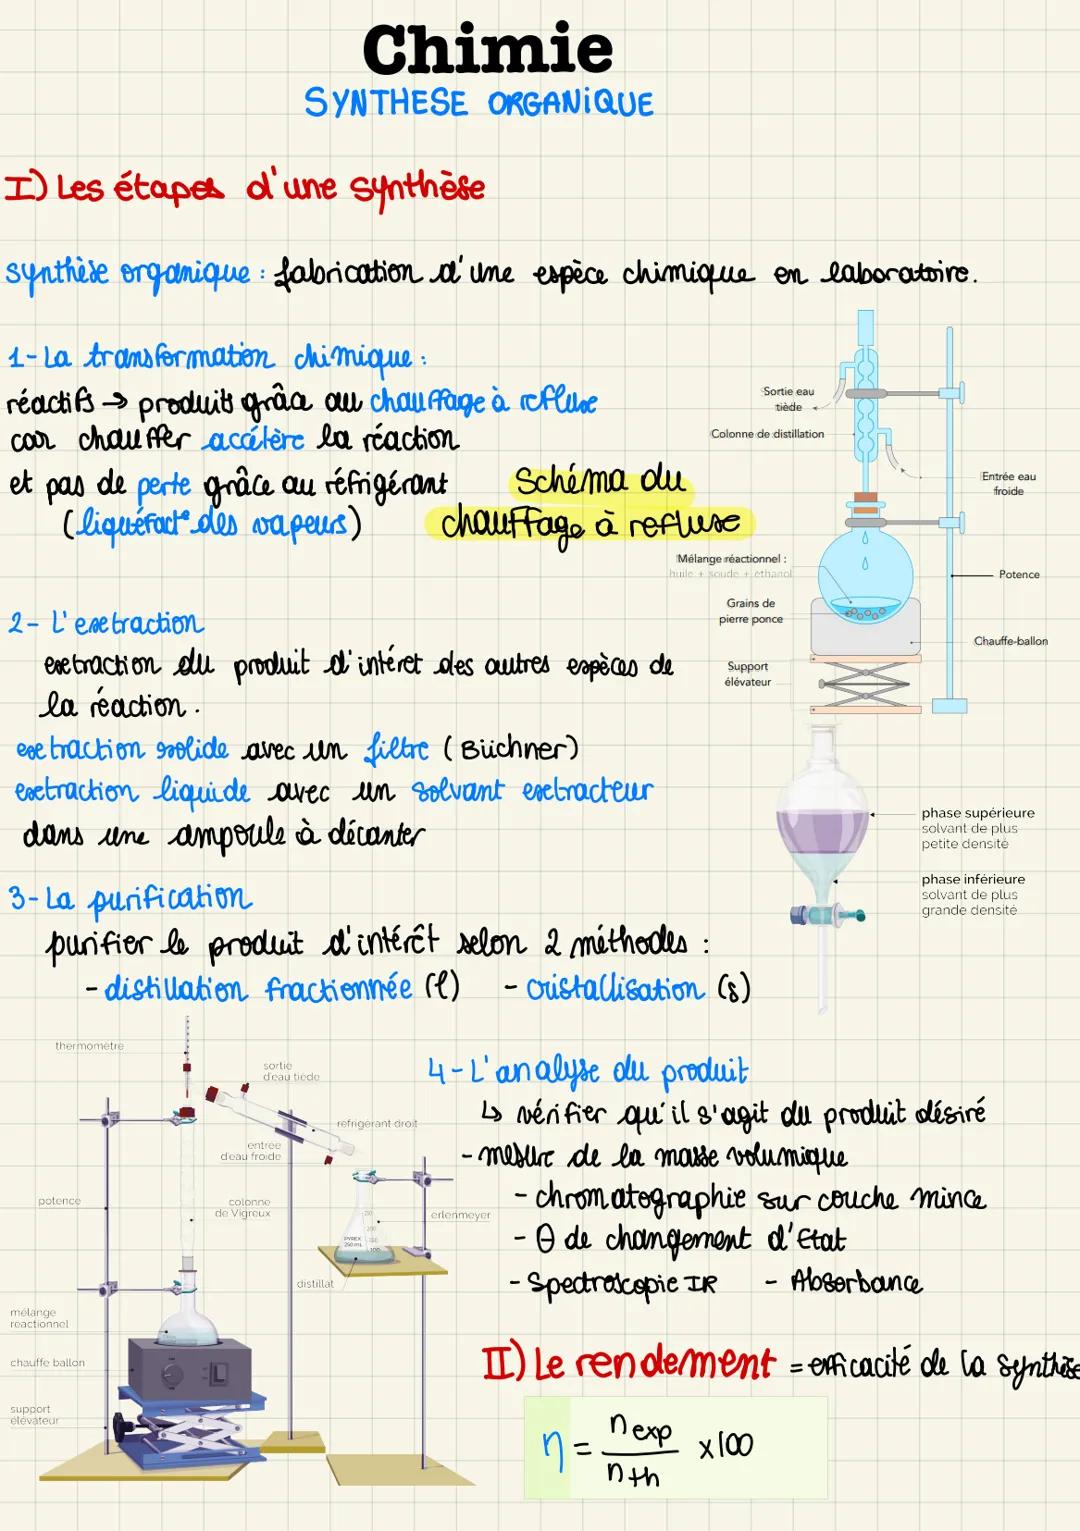 Chimie
SYNTHESE ORGANIQUE
I) Les étapes d'une synthèse
synthèse organique : fabrication d'une espèce chimique en laboratoire.
1- La transformation chimique :
réactifs → produits grâce au chauffage à reflux
car chauffer accélère la réaction
et pas de perte grâce au réfrigérant
(liquéfact° des vapeurs)
Schéma du
chauffage à reflux
Sortie eau
tiède
Colonne de distillation
Entrée eau
froide
Mélange réactionnel :
huile + soude + éthanol
Potence
Grains de
pierre ponce
Chauffe-ballon
Support
élévateur
2- L'extraction
extraction du produit d'intéret des autres espèces de
la réaction.
extraction solide avec un filtre (Büchner)
extraction liquide avec un solvant extracteur
dans une ampoule à décanter
phase supérieure
solvant de plus
petite densité
phase inférieure
solvant de plus
grande densité
3- La purification
purifier le produit d'intérêt selon 2 méthodes :
- distillation fractionnée (l) - cristallisation (s)
thermomètre
sortie
d'eau tiède
réfrigérant droit
entrée
d'eau froide
potence
colonne
de Vigreux
erlenmeyer
PYREX
250 mL
distillat
mélange
réactionnel
chauffe ballon
support
élévateur
4- L'analyse du produit
↳ vérifier qu'il s'agit du produit désiré
- mesure de la masse volumique
- chromatographie sur couche mince
- θ de changement d'Etat
- Spectroscopie IR - Absorbance
II) Le rendement = efficacité de la synthèse
η = n exp / n th x100